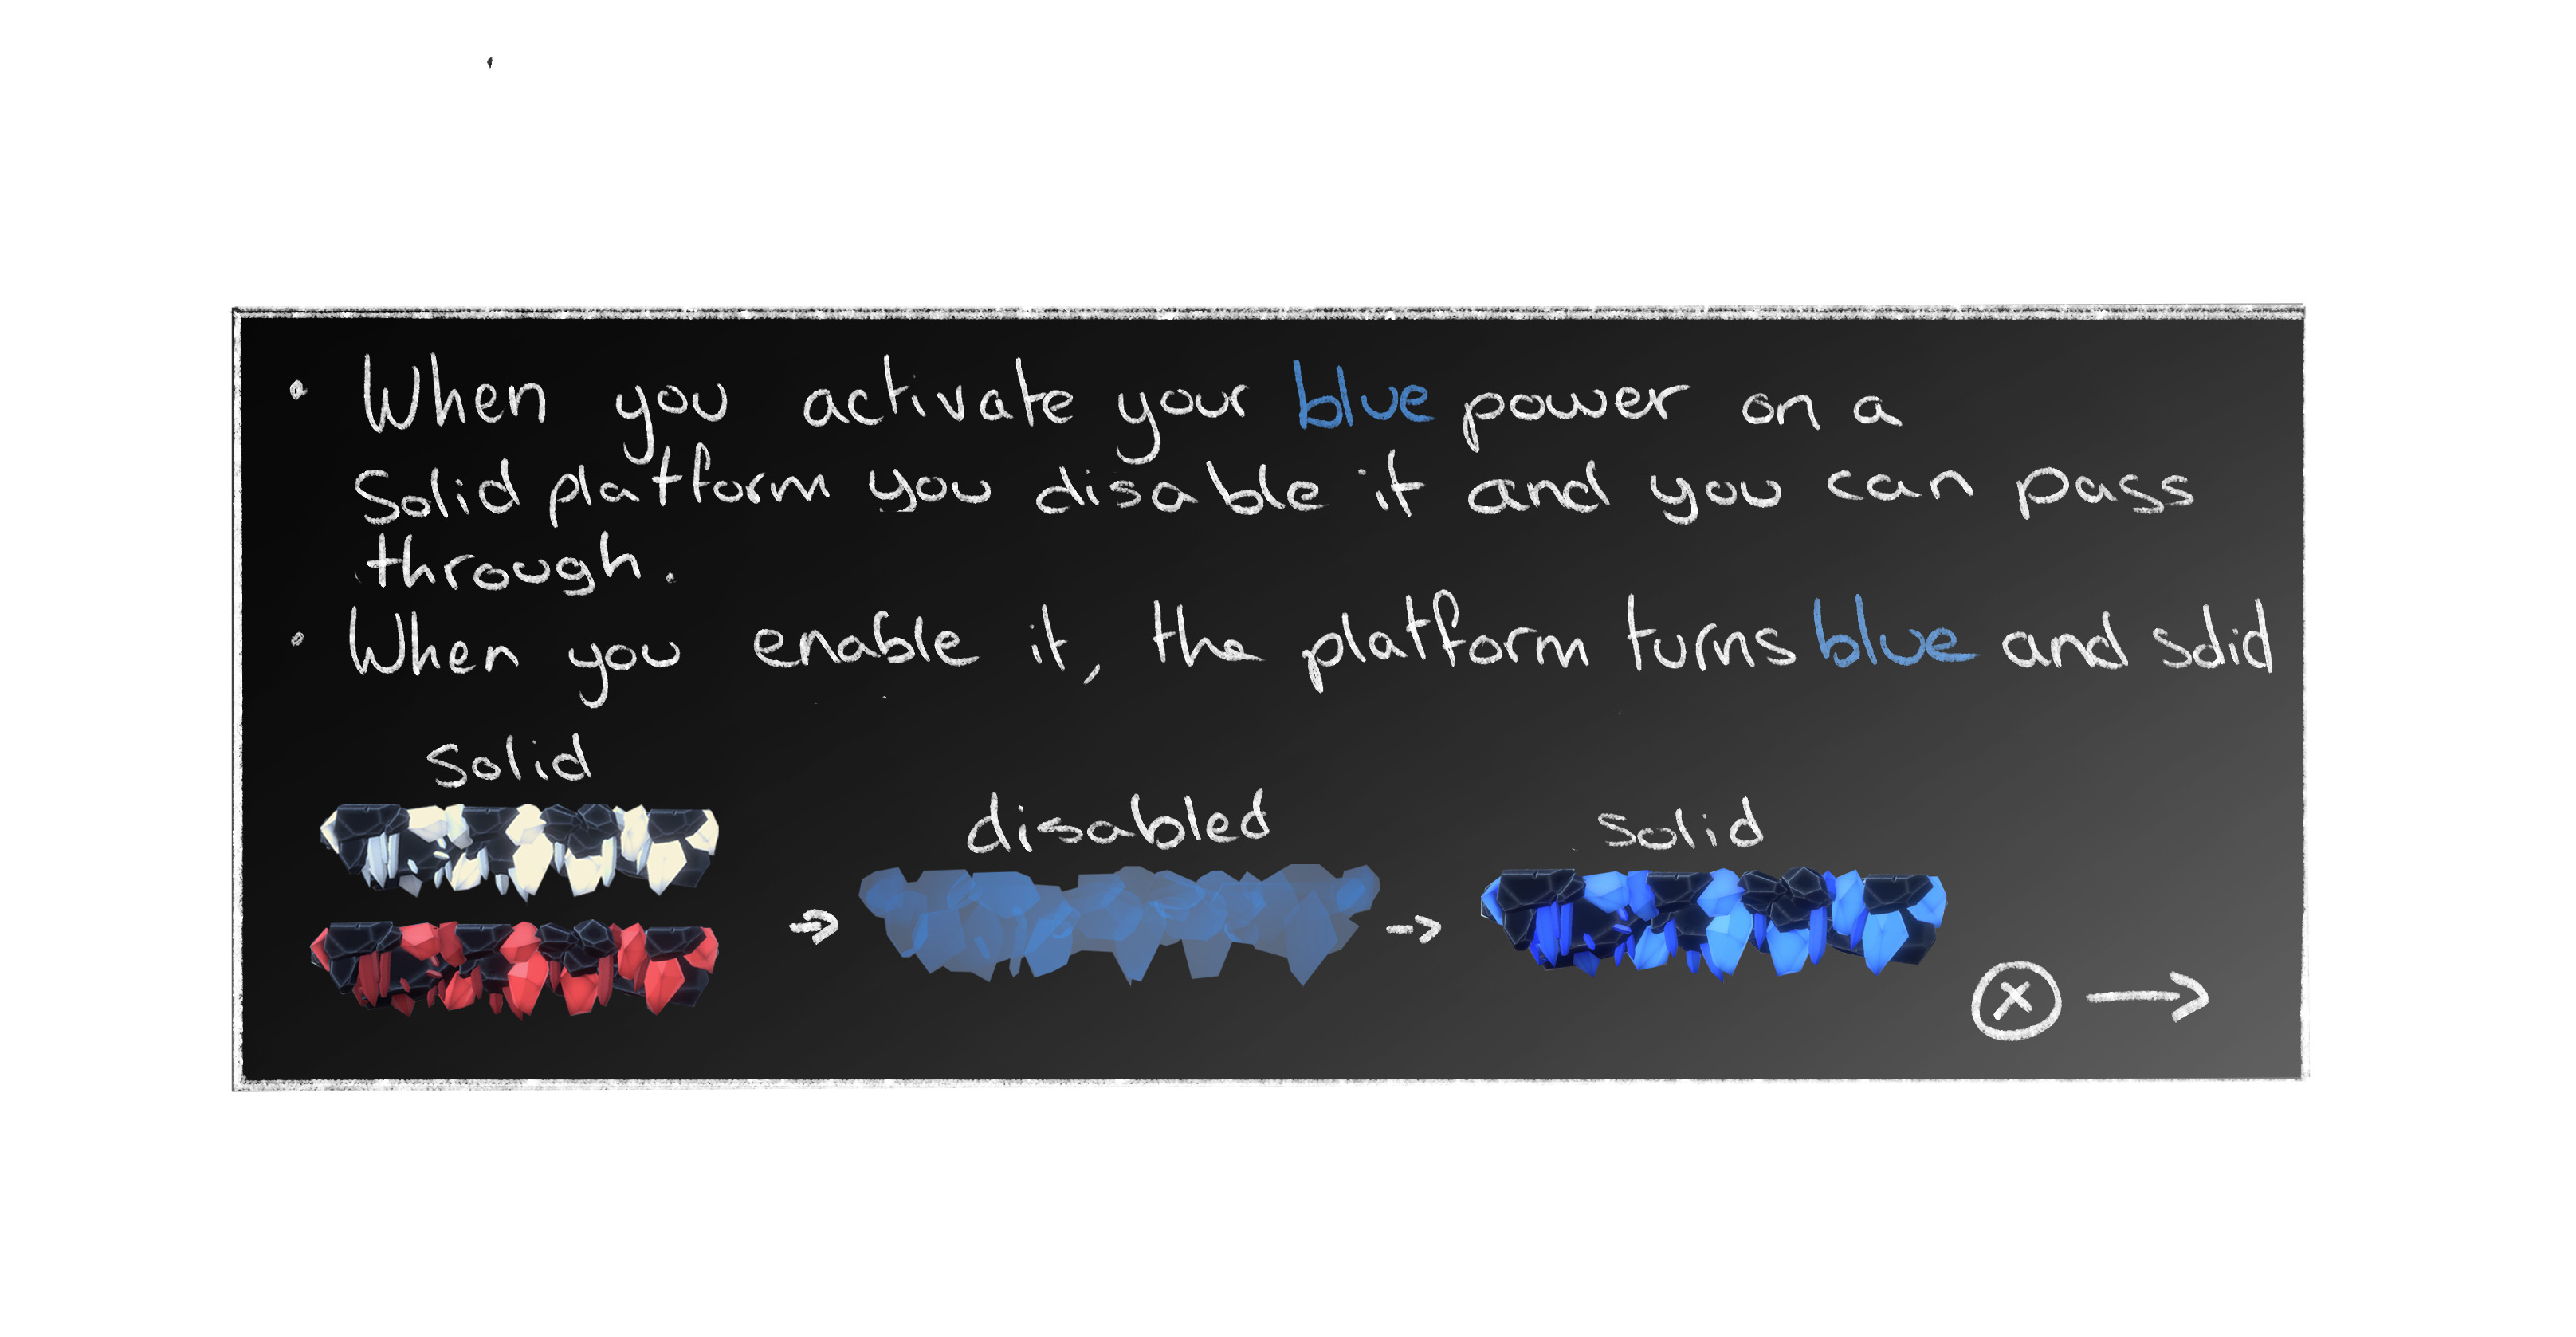 • When you activate your blue power on a
Solid platform you disable it and you can pass
through.
• When you enable it, the platform turns blue and solid
Solid
disabled
Solid
X →